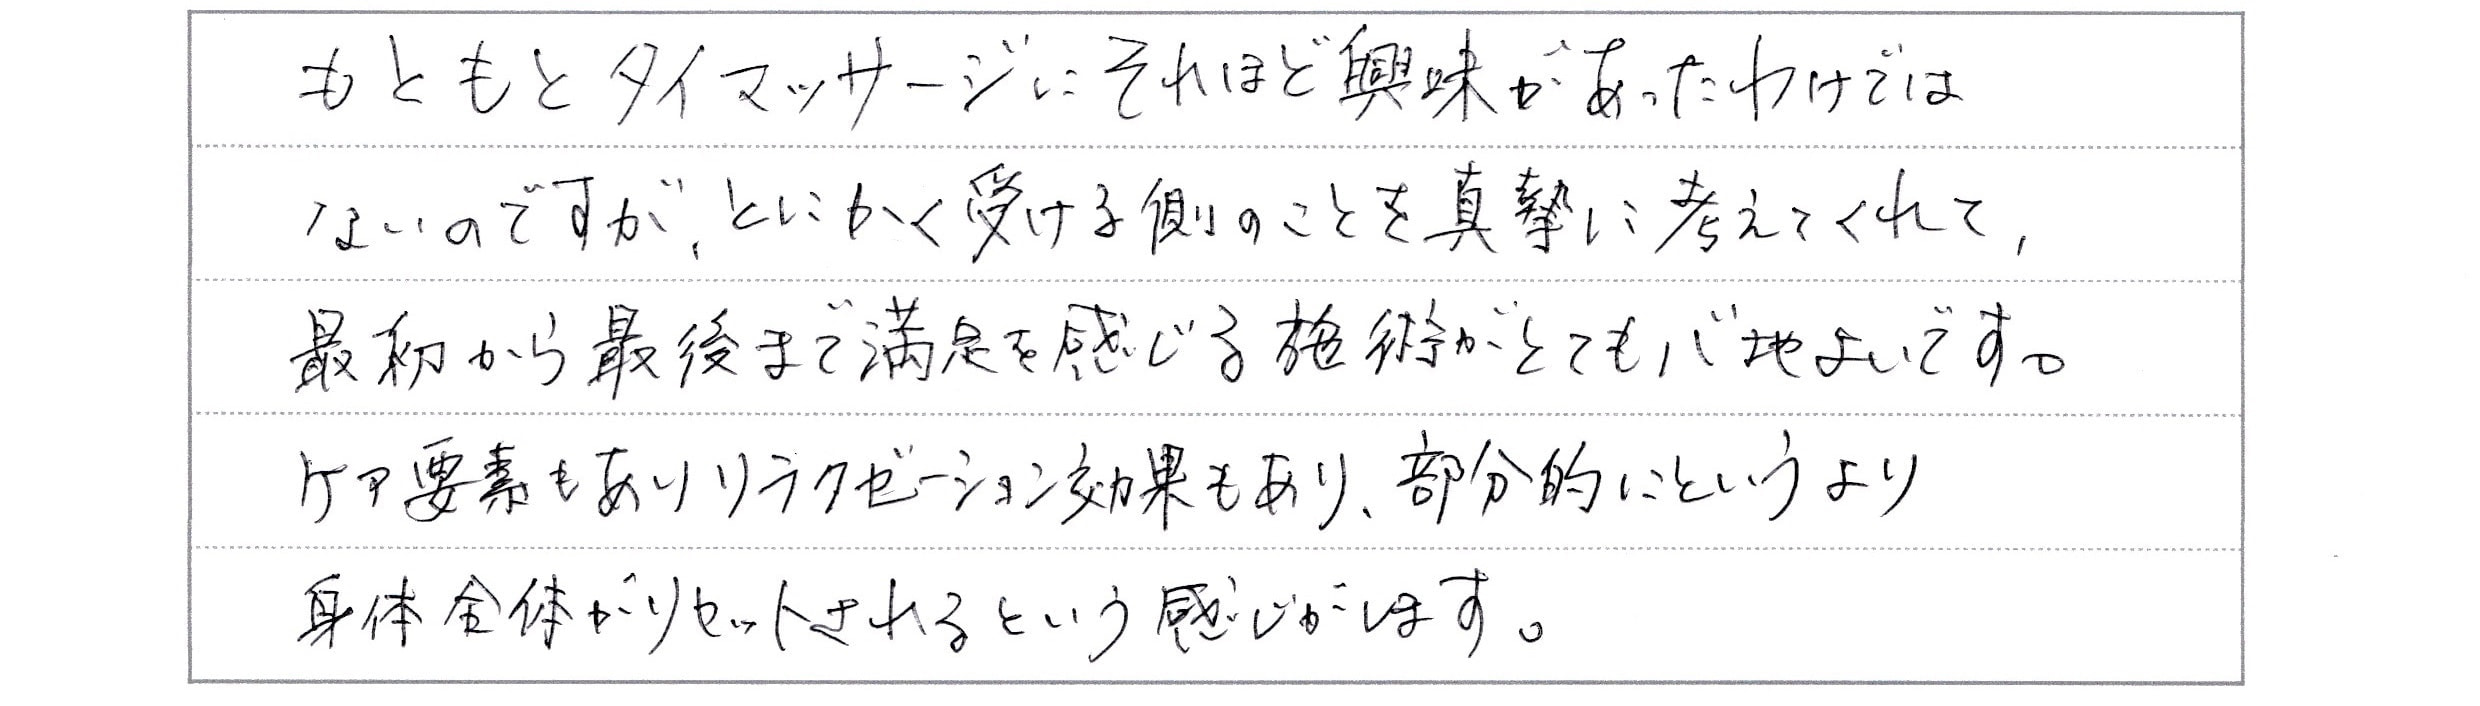 もともとタイマッサージにそれほど興味があったわけでは
ないのですが、とにかく受ける側のことを真摯に考えてくれて、
最初から最後まで満足を感じる施術がとても心地よいです。
ケア要素もありリラクゼーション効果もあり、部分的にというより
身体全体がリセットされるという感じがします。